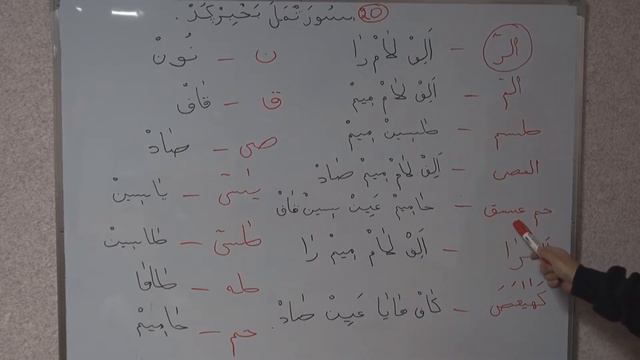 20
الٓرٰ – اَلِفْ لَامْ رَا
الٓمٓ – اَلِفْ لَامْ مِيمْ
طٰسٓمٓ – طَاسِينْ مِيمْ
الٓمٓصٓ – اَلِفْ لَامْ مِيمْ صَادْ
حم عسق – حَامِيمْ عَيِنْ سِيِنْ قَافْ
– اَلِفْ لَامْ مِيمْ رَا
كٓهٰيٰعٓصٓ – كَافْ هَايَا عَيِنْ صَادْ
ن – نُونْ
ق – قَافْ
ص – صَادْ
يٰسٓ – يَاسِينْ
طٰسٓ – طَاسِينْ
طه – طَاهَا
حم – حَامِيمْ